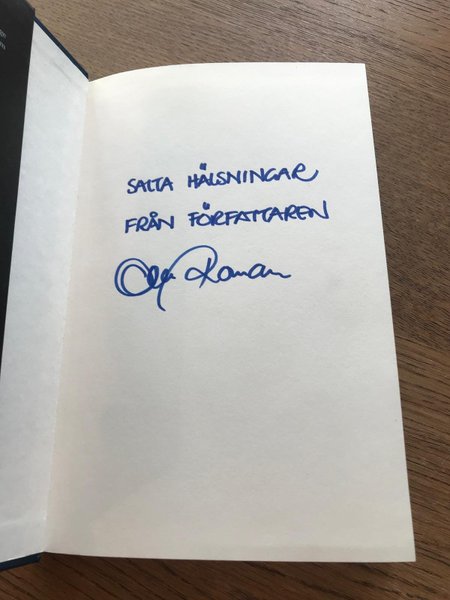 SALTA HÄLSNINGAR
FRÅN FÖRFATTAREN
Roman